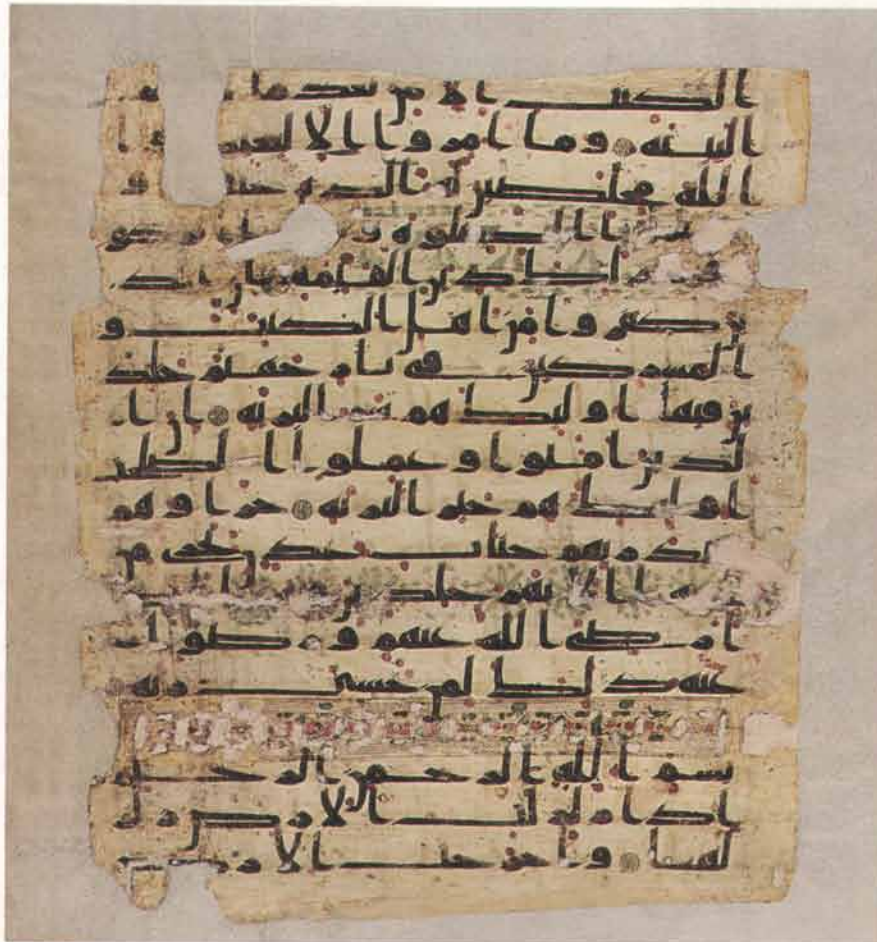 الكتب الا من بعد ما
البينه وما امروا الا ليعبدوا
الله مخلصين له الدين حنفا و
الصلوه و
دين القيمه ان الذ
ين كفروا من اهل الكتب و
المشركين في نار جهنم خلد
ين فيها اوليك هم شر البريه ان ا
لذين امنوا وعملوا الصلحت
اوليك هم خير البريه جزاوهم
عند ربهم جنت عدن تجري من
الانهر خلدين
ا رضي الله عنهم ورضوا
عنه ذلك لمن خشي ربه
بسم الله الرحمن الرحيم
اذا زلزلت الارض زلز
لها واخرجت الارض